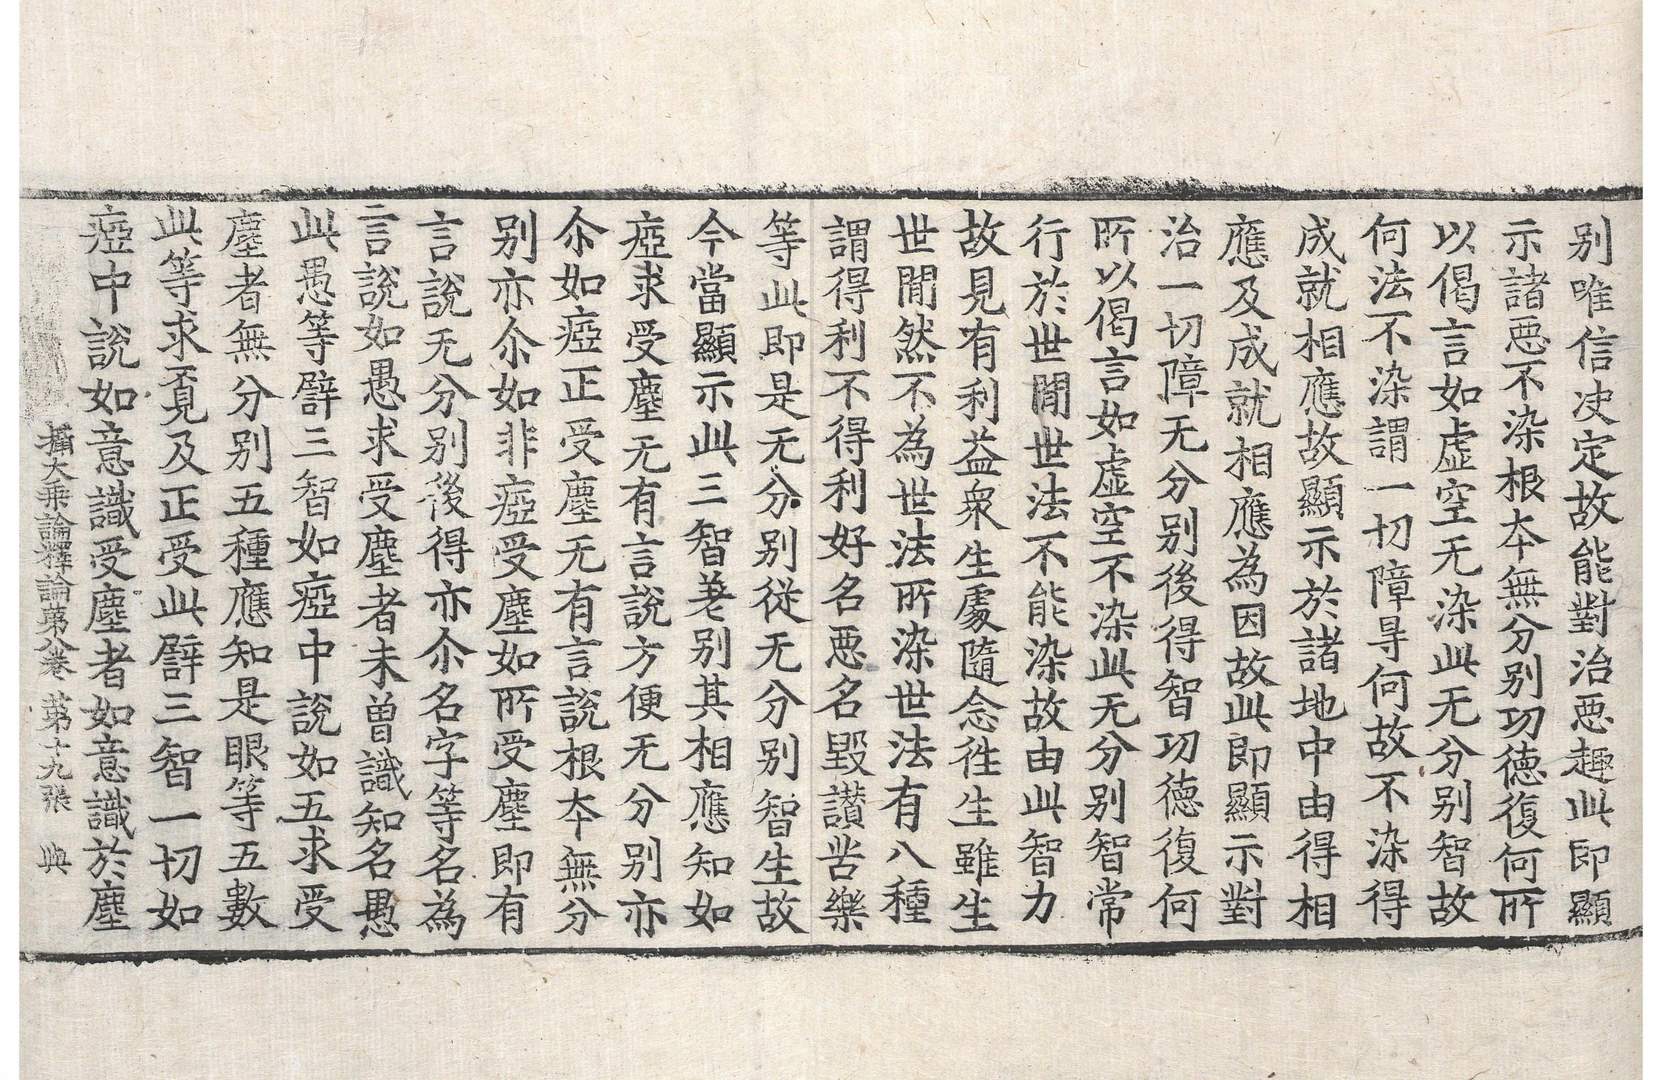 别唯信决定故能對治恶趣此即顯
示諸恶不染根本無分别功德復何所
以偈言如虚空无染此无分别智故
何法不染謂一切障㝵何故不染得
成就相應故顯示於諸地中由得相
應及成就相應為因故此即顯示對
治一切障无分别後得智功德復何
所以偈言如虚空不染此无分别智常
行於世間世法不能染故由此智力
故見有利益衆生處隨念徃生雖生
世間然不為世法所染世法有八種
謂得利不得利好名恶名毀讃苦樂
等此即是无分别從无分别智生故
今當顯示此三智差别其相應知如
瘂求受塵无有言說方便无分别亦
尒如瘂正受塵无有言說根本無分
别亦尒如非瘂受塵如所受塵即有
言說无分别後得亦尒名字等名為
言說如愚求受塵者未曽識知名愚
此愚等譬三智如瘂中說如五求受
塵者無分别五種應知是眼等五數
此等求覓及正受此譬三智一切如
瘂中說如意識受塵者如意識於塵
攝大乘論釋論苐八卷 苐十九張 與